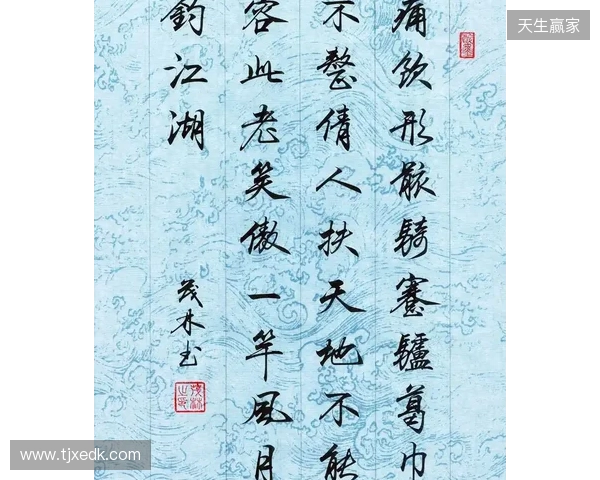 天生赢家
痛飲形骸騎蹇驢葛巾
不整倩人扶天地不能
容此老笑傲一竿風月
釣江湖
茂林书
www.tjxedk.com